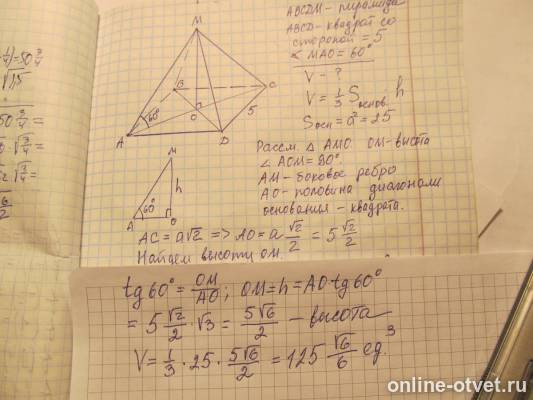 ABCDM - пирамида
ABCD - квадрат со
стороной = 5
∠ MAO = 60°
V - ?
V = 1/3 Sоснов. h
Sосн = a² = 25
M
B
C
60°
O
5
A
D
Рассм. △ AMO. OM - высота
∠ AOM = 90°.
AM - боковое ребро
AO - половина диагонали
основания - квадрата.
M
h
60°
A
O
AC = a√2 => AO = a √2/2 = 5 √2/2
Найдем высоту OM.
tg 60° = OM/AO ; OM = h = AO · tg 60°
= 5 √2/2 · √3 = 5√6/2 - высота
V = 1/3 · 25 · 5√6/2 = 125 √6/6 ед.³
online-otvet.ru